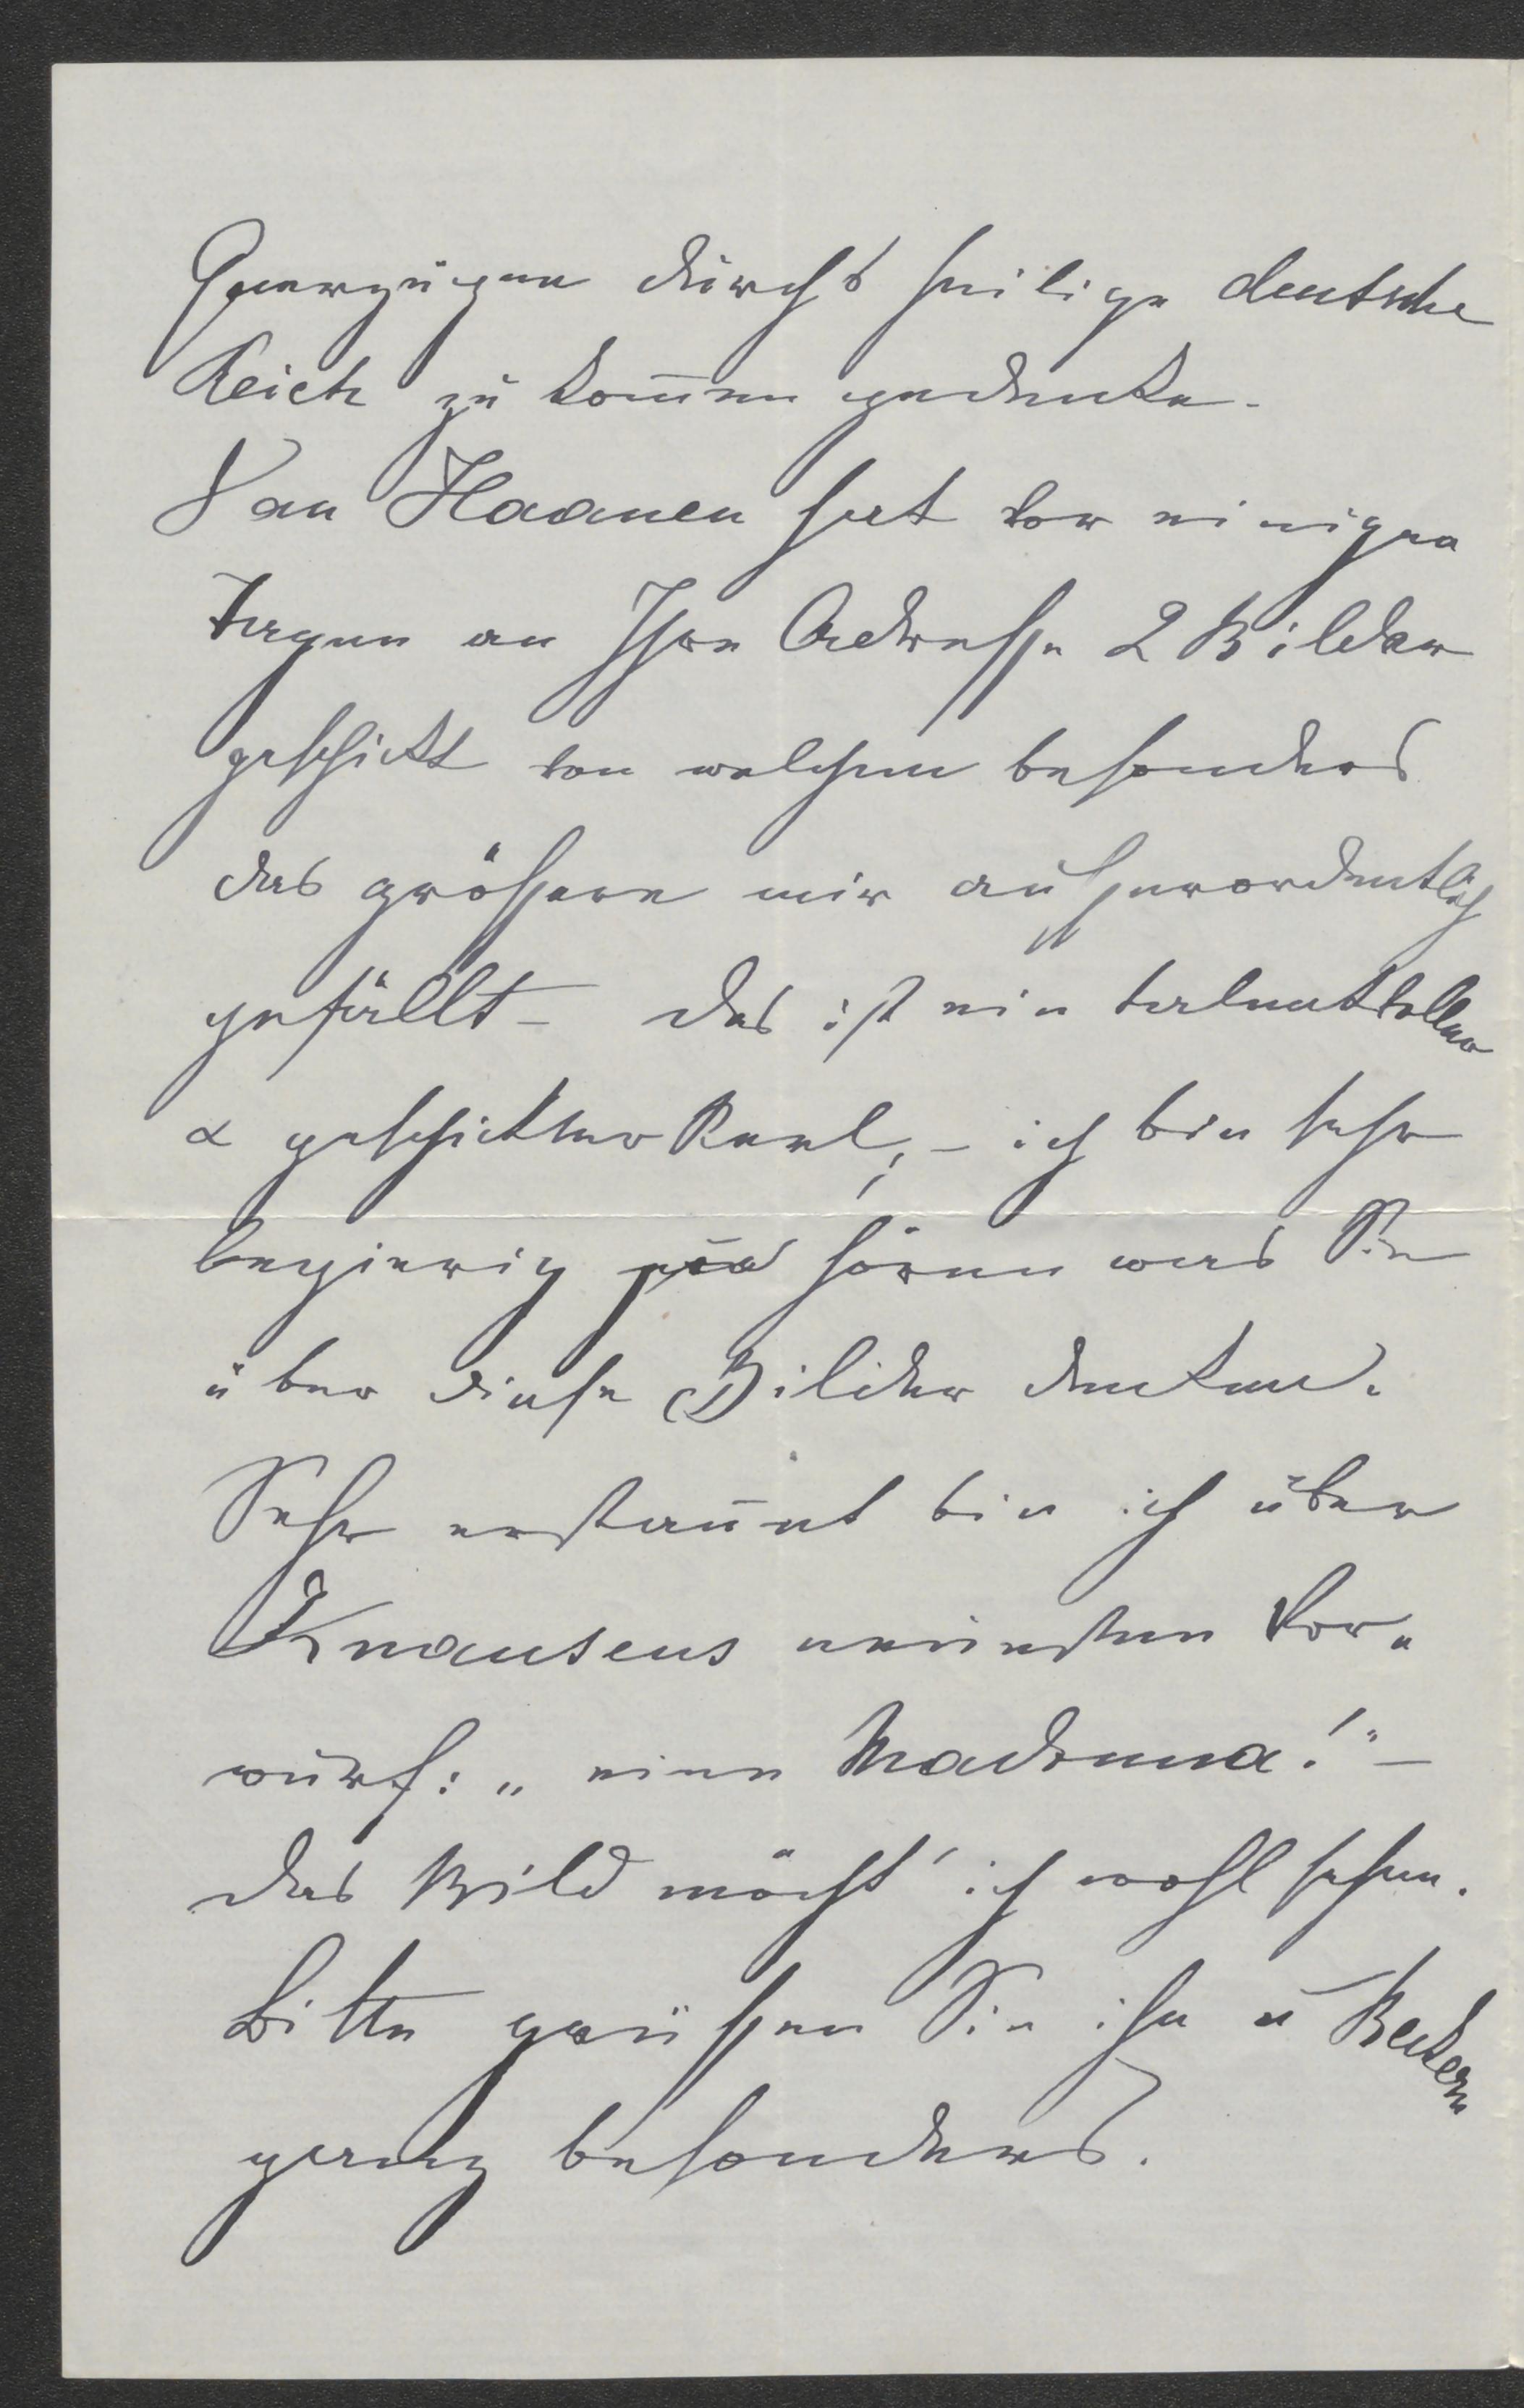 Querzügen durch's heilige deutsche
Reich zu kom̄en gedenke.
Van Haanen hat vor einigen
Tagen an Ihre Adresse 2 Bilder
geschickt von welchen besonders
das größere mir außerordentlich
gefällt – das ist ein talentvoller
& geschickter Kerl, – ich bin sehr
begierig zu hören was Sie
über diese Bilder denken.
Sehr erstaunt bin ich über
Knausens neuesten Vor„
wurf: „eine Madonna!" –
das Bild möcht' ich wohl sehen.
Bitte grüßen Sie ihn u Beckern
ganz besonders.